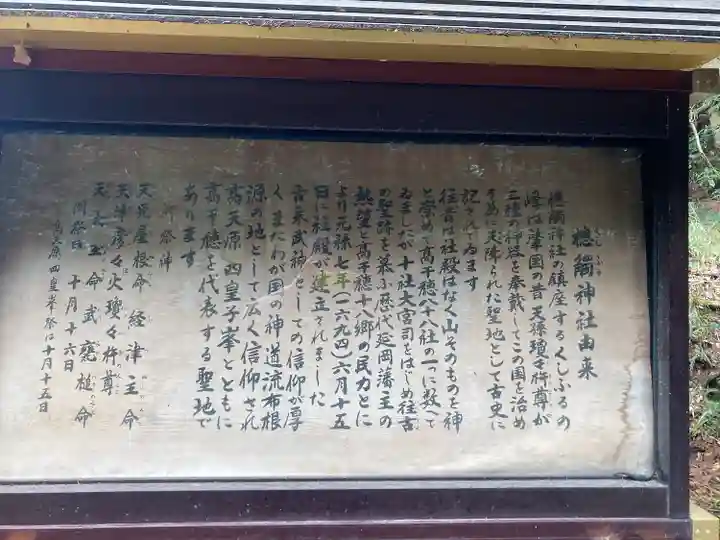 槵觸神社由来
槵觸神社の鎮座するくしふるの
峰は肇国の昔天孫瓊々杵尊が
三種の神器を奉戴してこの国を治め
る為に天降られた聖地として古史に
記されてゐます
往昔は社殿はなく山そのものを神
と崇め高千穂八十八社の一つに数へて
ゐましたが十社大宮司をはじめ往古
の聖跡を慕ふ歴代延岡藩主の
熱望と高千穂十八郷の民力とに
より元禄七年(一六九四)六月十五
日に社殿が建立されました
古来武神としての信仰が厚
くまたわが国の神道流布根
源の地として広く信仰され
高天原四皇子峯とともに
高千穂を代表する聖地で
あります
御祭神
天児屋根命 経津主命
天津彦々火瓊々杵尊
天太玉命 武甕槌命
例祭日 十月十六日
高天原四皇峯祭は十月十五日